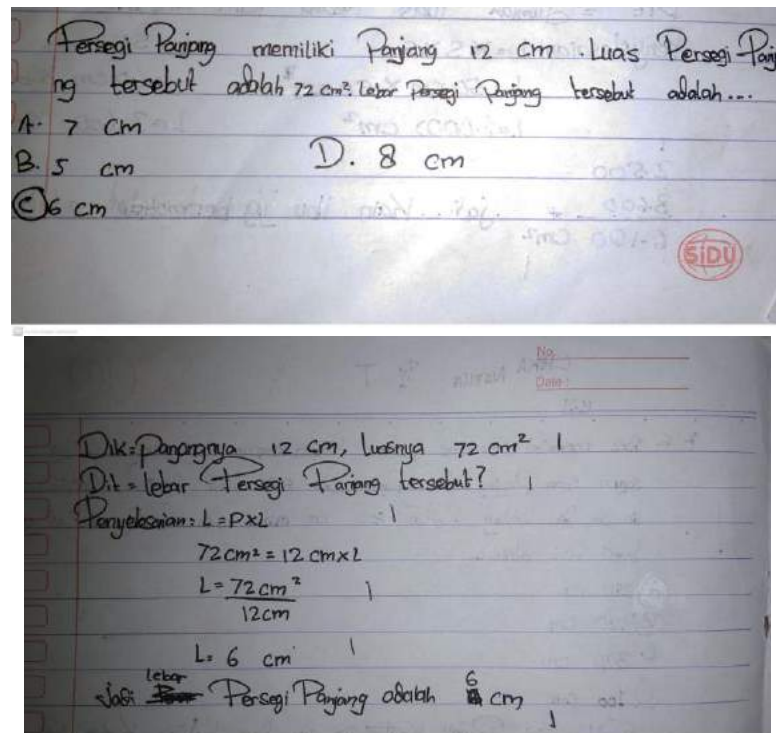 Persegi Panjang memiliki Panjang 12 cm. Luas Persegi Panja
ng tersebut adalah 72 cm². Lebar Persegi Panjang tersebut adalah...
A. 7 cm
B. 5 cm
D. 8 cm
C 6 cm
SiDU
No.
Date:
Dik = Panjangnya 12 cm, Luasnya 72 cm² 1
Dit = lebar Persegi Panjang tersebut? 1
Penyelesaian: L = P x L 1
72 cm² = 12 cm x L
L = 72 cm² 1
12 cm
L = 6 cm 1
Jadi lebar Persegi Panjang adalah 6 cm
1